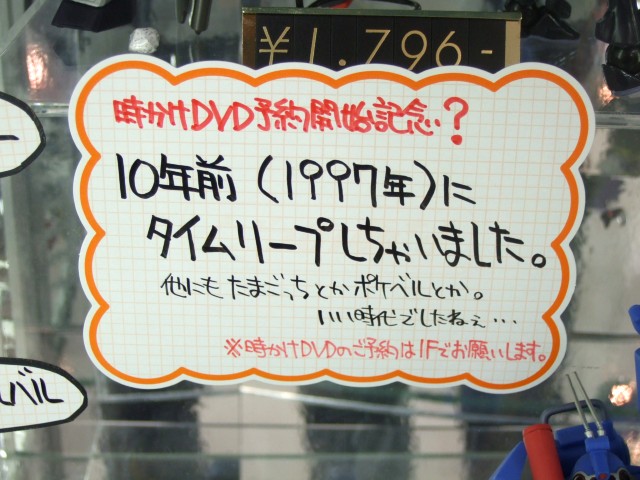 ¥1,796-
時かけDVD予約開始記念?
10年前(1997年)に
タイムリープしちゃいました。
他にもたまごっちとかポケベルとか。
いい時代でしたねぇ…
※時かけDVDのご予約は1Fでお願いします。
ー
ベル